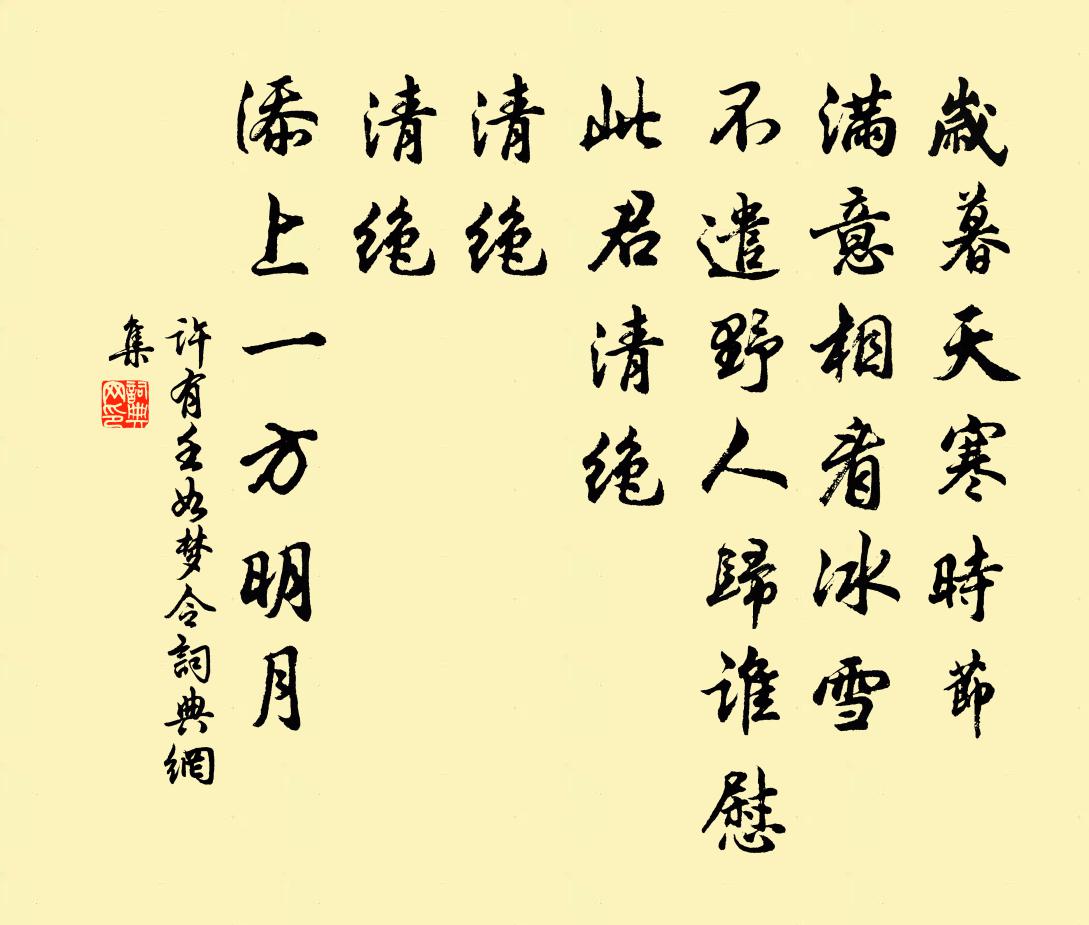 歲暮天寒時節
滿意相看冰雪
不遣野人歸誰慰
此君清絕
清絕
清絕
添上一方明月
許有壬如梦令詞典網
集
詞典网印